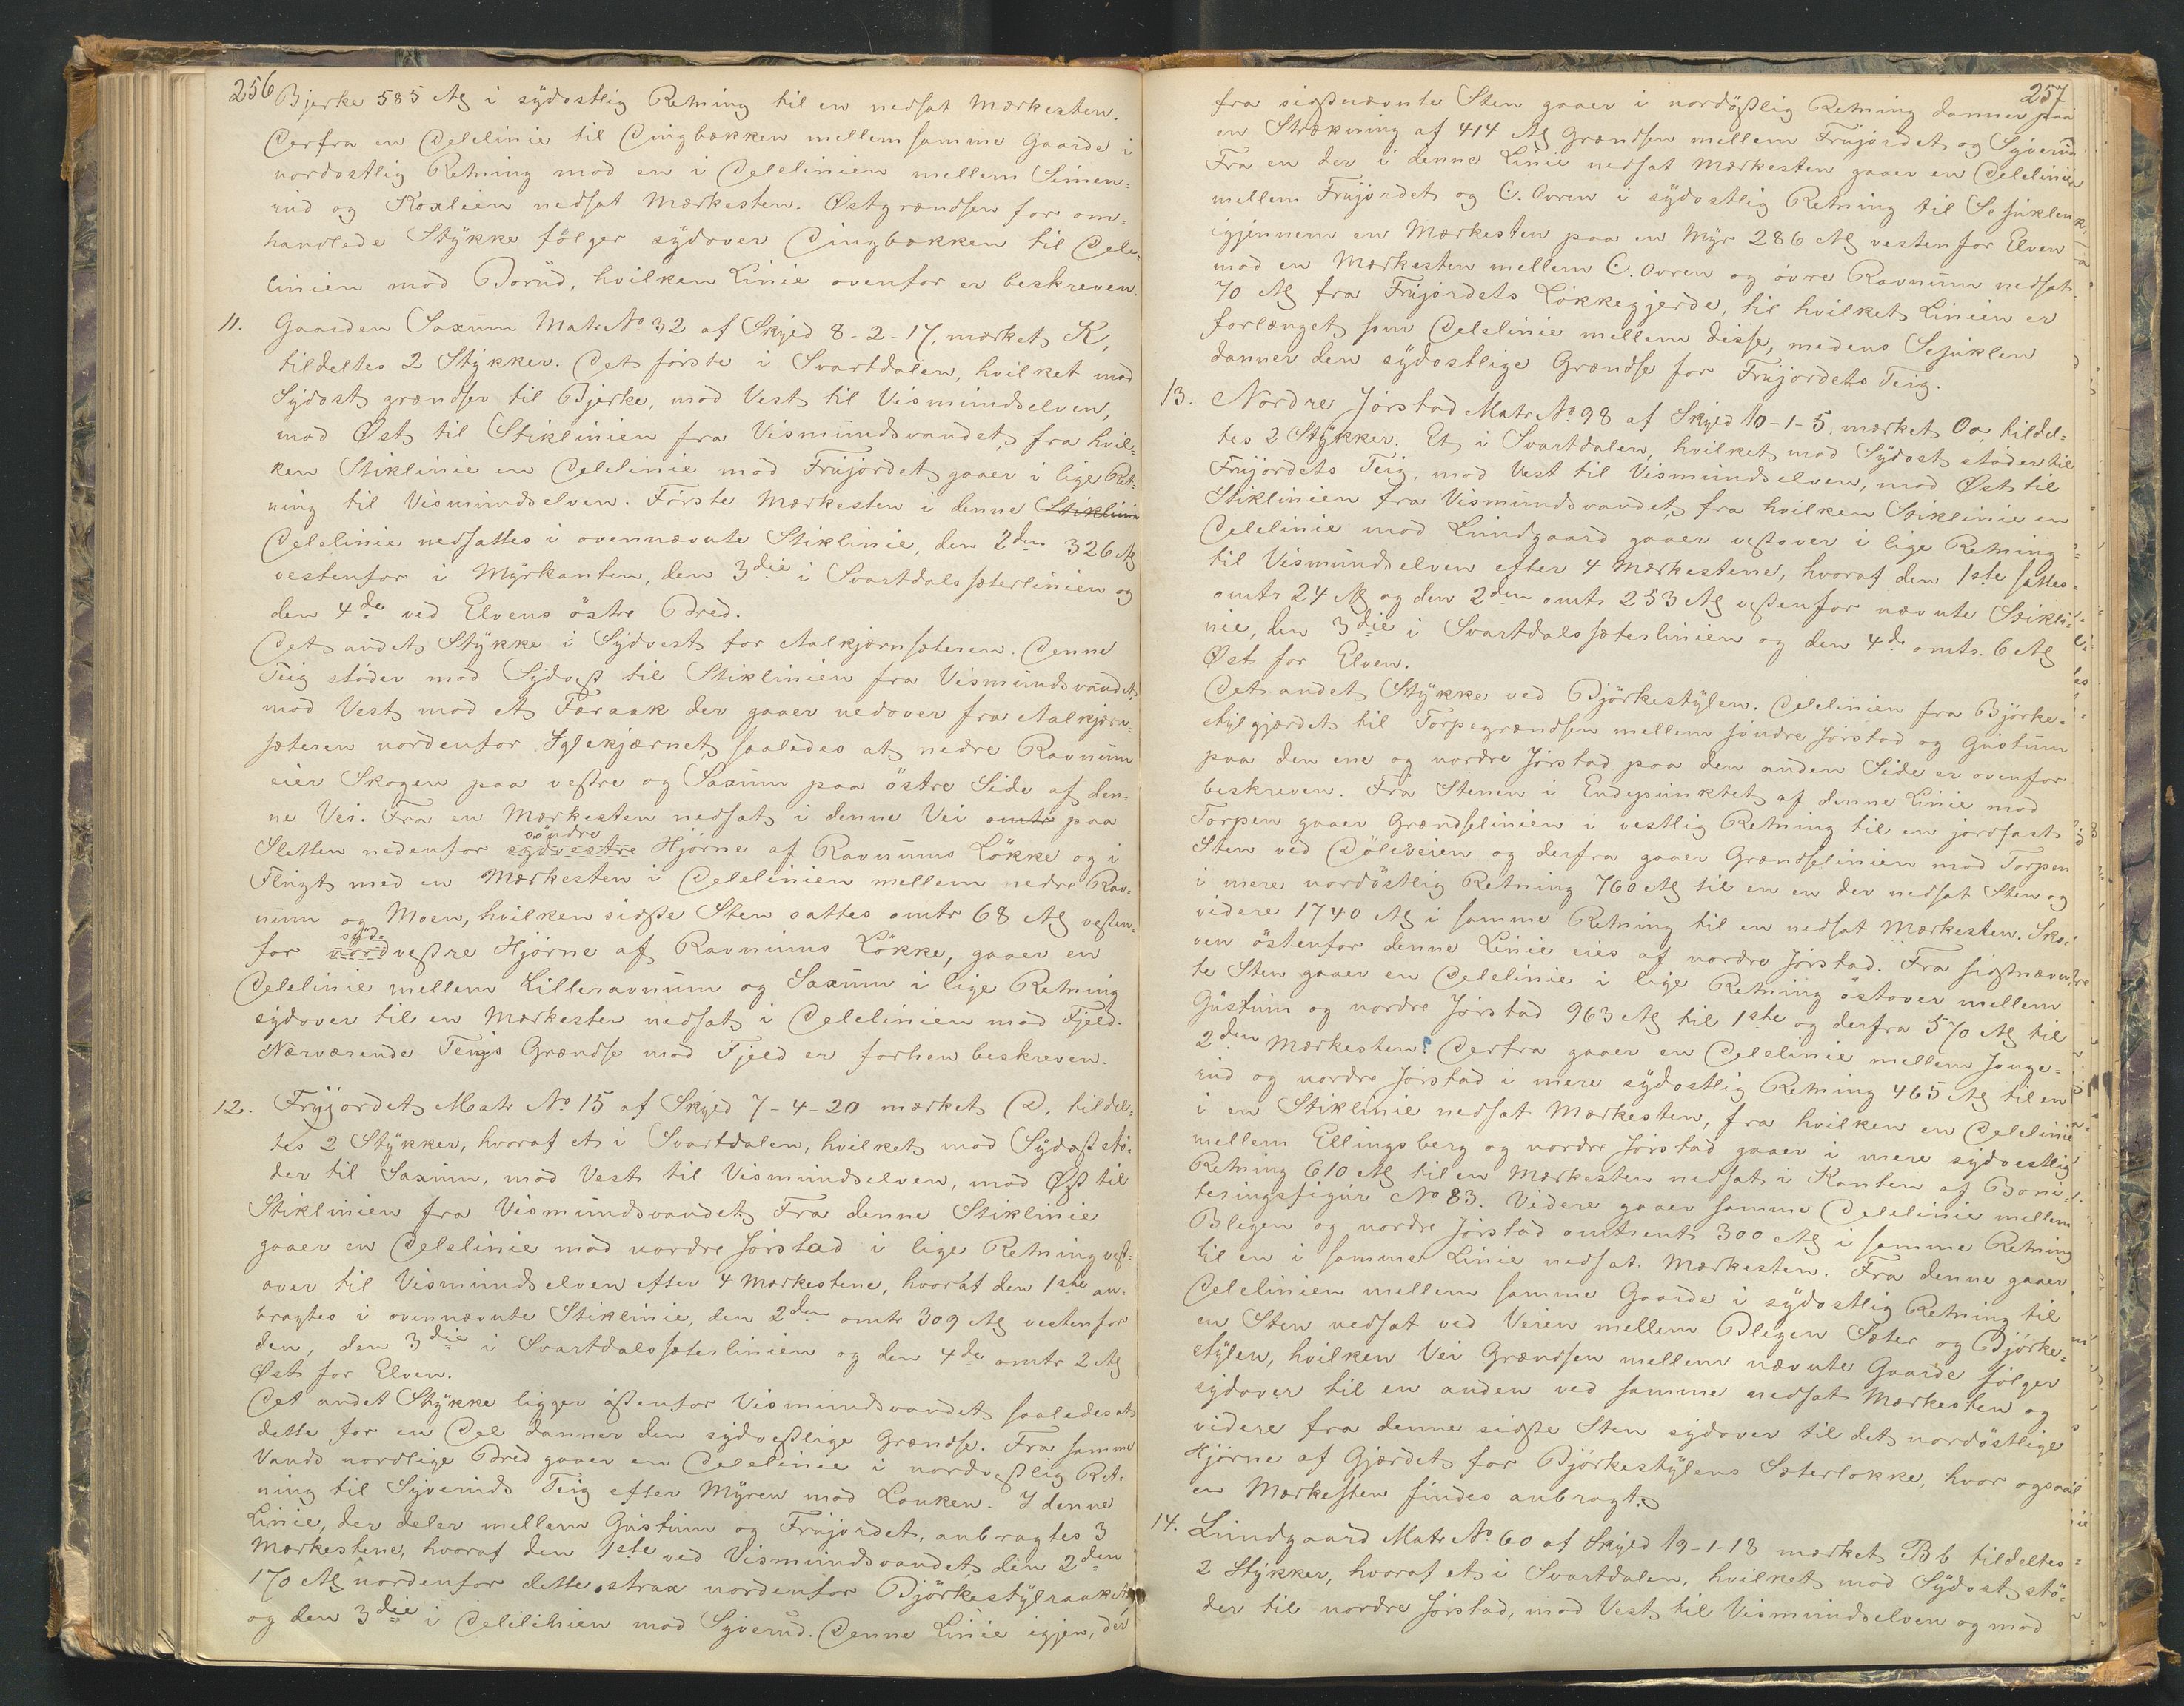 256
Bjerke 585 Al i sydostlig Retning til en nedsat Mærkesten.
Derfra en Delelinie til Dingbækken mellem samme Gaarde i
nordostlig Retning mod en i Delelinien mellem Simen-
rud og Koxlien nedsat Mærkesten. Østgrændsen for om-
handlede Stykke følger sydover Dingbækken til Dele-
linien mod Borud, hvilken Linie ovenfor er beskreven.
11. Gaarden Saxum Matr No 32 af Skyld 8-2-17, mærket K,
tildeltes 2 Stykker. Det første i Svartdalen, hvilket mod
Sydost grændser til Bjerke, mod Vest til Vismundselven,
mod Øst til Stiklinien fra Vismundsvandet, fra hvil-
ken Stiklinie en Delelinie mod Frujordet gaaer i lige Ret-
ning til Vismundselven. Første Mærkesten i denne Stiklinie
Delelinie nedsattes i ovennævnte Stiklinie, den 2den 326 Al
vestenfor i Myrkanten, den 3die i Svartdalssæterlinien og
den 4de ved Elvens östre Bred.
Det andet Stykke i Sydvest for Aalkjærnsæteren. Denne
Teig stöder mod Sydvest til Stiklinien fra Vismundsvandet,
mod Vest mod et Faraak der gaaer nedover fra Aalkjærn-
sæteren nordenfor Iglekjærnet, saaledes at nedre Ravnum
eier Skogen paa vestre og Saxum paa östre Side af den-
ne Vei. Fra en Mærkesten nedsat i denne Vei omtr paa
söndre
Sletten nedenfor sydvestre Hjörne af Ravnums Lökke og i
Flugt med en Mærkesten i Delelinien mellem nedre Rav-
num og Moen, hvilken sidste Sten sattes omtr 68 Al vesten-
syd-
for nordvestre Hjörne af Ravnums Lökke, gaaer en
Delelinie mellem Lilleravnum og Saxum i lige Retning
sydover til en Mærkesten nedsat i Delelinien mod Fjeld.
Nærværende Teigs Grændse mod Fjeld er forhen beskreven.
12. Frujordet Matr No 15 af Skyld 7-4-20 mærket D, tildel-
tes 2 Stykker, hvoraf et i Svartdalen, hvilket mod Sydost stö-
der til Saxum, mod Vest til Vismundselven, mod Øst til
Stiklinien fra Vismundsvandet. Fra denne Stiklinie
gaaer en Delelinie mod nordre Jörstad i lige Retning vest-
over til Vismundselven efter 4 Mærkestene, hvoraf den 1ste an-
bragtes i ovennævnte Stiklinie, den 2den omtr 309 Al vestenfor
den, den 3die i Svartdalssæterlinien og den 4de omtr 2 Al
Øst for Elven.
Det andet Stykke ligger östenfor Vismundsvandet saaledes at
dette for en Del danner den sydvestlige Grændse. Fra samme
Vands nordlige Bred gaaer en Delelinie i nordvestlig Ret-
ning til Syveruds Teig efter Myren mod Lonken. I denne
Linie, der deler mellem Gustum og Frujordet, anbragtes 3
Mærkestene, hvoraf den 1ste ved Vismundsvandet, den 2den
170 Al nordenfor dette strax nordenfor Björkestylraaket,
og den 3die i Delelinien mod Syverud. Denne Linie igjen, der
257
fra sidstnævnte Sten gaaer i nordöstlig Retning danner paa
en Strækning af 414 Al Grændsen mellem Frujordet og Syverud
Fra en der i denne Linie nedsat Mærkesten gaaer en Delelinie
mellem Frujordet og C. Ovren i sydostlig Retning til Sejuklen
igjennem en Mærkesten paa en Myr 286 Al vestenfor Elven
mod en Mærkesten mellem C. Ovren og övre Ravnum nedsat
70 Al fra Frujordets Lökkegjerde, til hvilket Linien er
forlænget som Delelinie mellem disse, medens Sejuklen
danner den sydostlige Grændse for Frujordets Teig.
13. Nordre Jörstad Matr No 98 af Skyld 10-1-5, mærket Oa, tildel-
tes 2 Stykker. Et i Svartdalen, hvilket mod Sydost stöder til
Frujordets Teig, mod Vest til Vismundselven, mod Øst til
Stiklinien fra Vismundsvandet, fra hvilken Stiklinie en
Delelinie mod Lundgaard gaaer vestover i lige Retning
til Vismundselven efter 4 Mærkestene, hvoraf den 1ste sattes
omtr 24 Al og den 2den omtr 253 Al vestenfor nævnte Stikli-
nie, den 3die i Svartdalssæterlinien og den 4de omtr. 6 Al
Øst for Elven.
Det andet Stykke ved Björkestylen. Delelinien fra Björke-
stylgjærdet til Torpegrændsen mellem söndre Jörstad og Gustum
paa den ene og nordre Jörstad paa den anden Side er ovenfor
beskreven. Fra Stenen i Endepunktet af denne Linie mod
Torpen gaaer Grændselinien i vestlig Retning til en jordfast
Sten ved Döleveien og derfra gaaer Grændselinien mod Torpen
i mere nordöstlig Retning 760 Al til en en der nedsat Sten og
videre 1740 Al i samme Retning til en nedsat Mærkesten. Sko-
ven östenfor denne Linie eies af nordre Jörstad. Fra sidstnævn-
te Sten gaaer en Delelinie i lige Retning östover mellem
Gustum og nordre Jörstad 963 Al til 1ste og derfra 570 Al til
2den Mærkesten. Derfra gaaer en Delelinie mellem Jonge-
rud og nordre Jörstad i mere sydostlig Retning 465 Al til en
i en Stiklinie nedsat Mærkesten, fra hvilken en Delelinie
mellem Ellingsberg og nordre Jörstad gaaer i mere sydvestlig
Retning 610 Al til en Mærkesten nedsat i Kanten af Boni-
teringsfigur No 83. Videre gaaer samme Delelinie mellem
Blegen og nordre Jörstad omtrent 300 Al i samme Retning
til en i samme Linie nedsat Mærkesten. Fra denne gaaer
Delelinien mellem samme Gaarde i sydostlig Retning til
en Sten nedsat ved Veien mellem Blegen Sæter og Björke-
stylen, hvilken Vei Grændsen mellem nævnte Gaarde fölger
sydover til en anden ved samme nedsat Mærkesten og
videre fra denne sidste Sten sydover til det nordöstlige
Hjörne af Gjærdet for Björkestylens Sæterlökke, hvor ogsaa
en Mærkesten findes anbragt.
14. Lundgaard Matr No 60 af Skyld 19-1-18 mærket Bb tildeltes
2 Stykker, hvoraf et i Svartdalen, hvilket mod Sydost stö-
der til nordre Jörstad, mod Vest til Vismundselven og mod